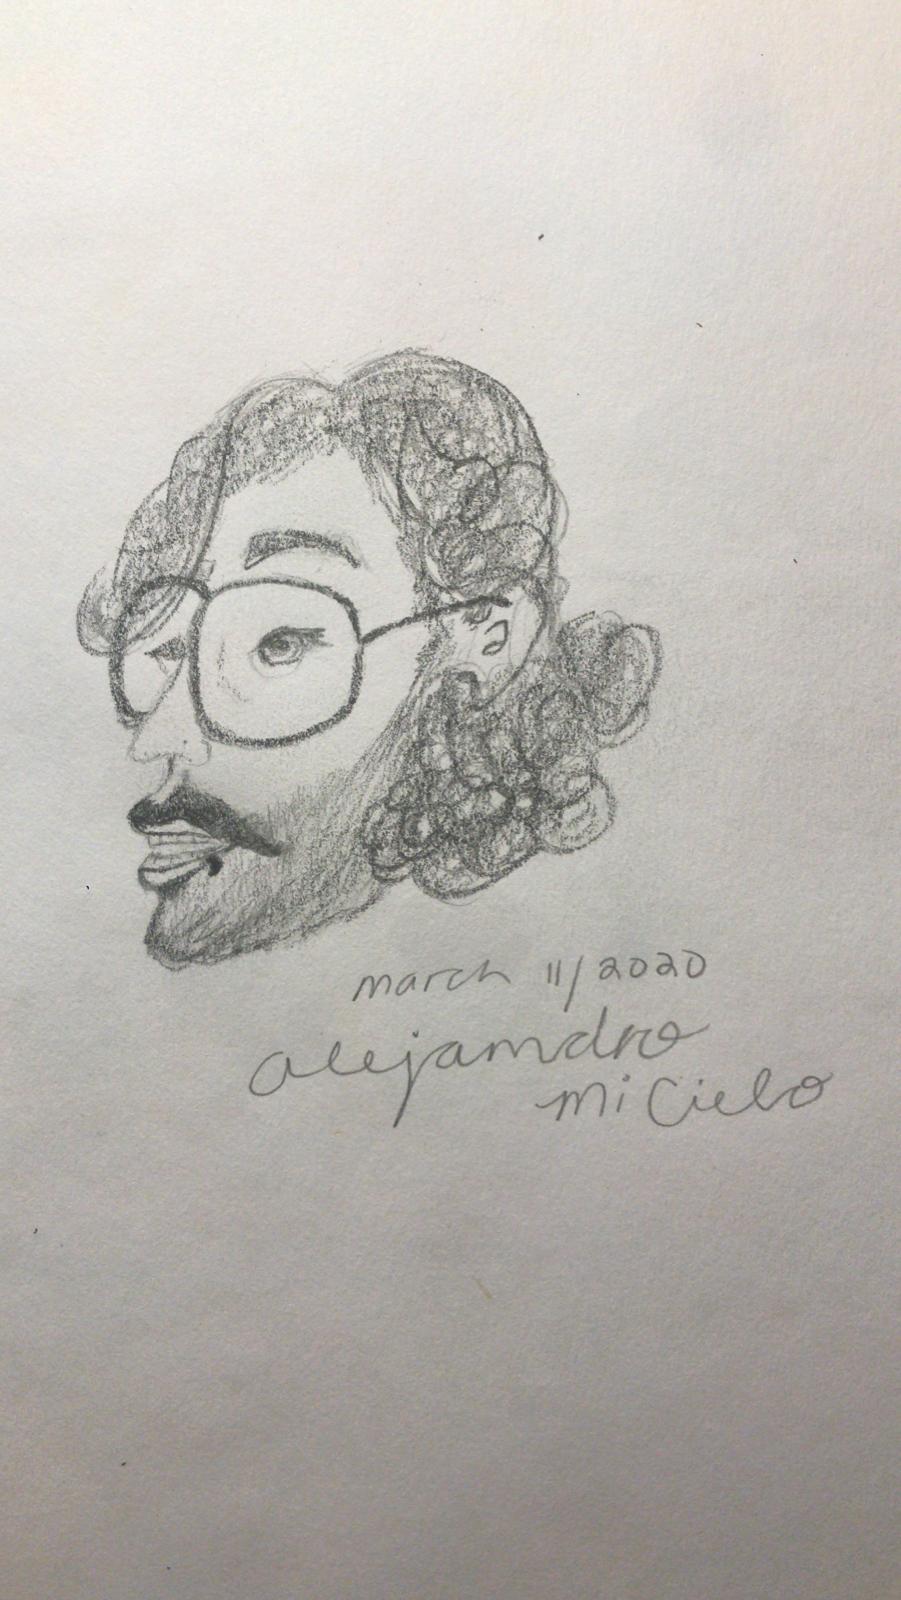 march 11/2020
alejandro
mi Cielo